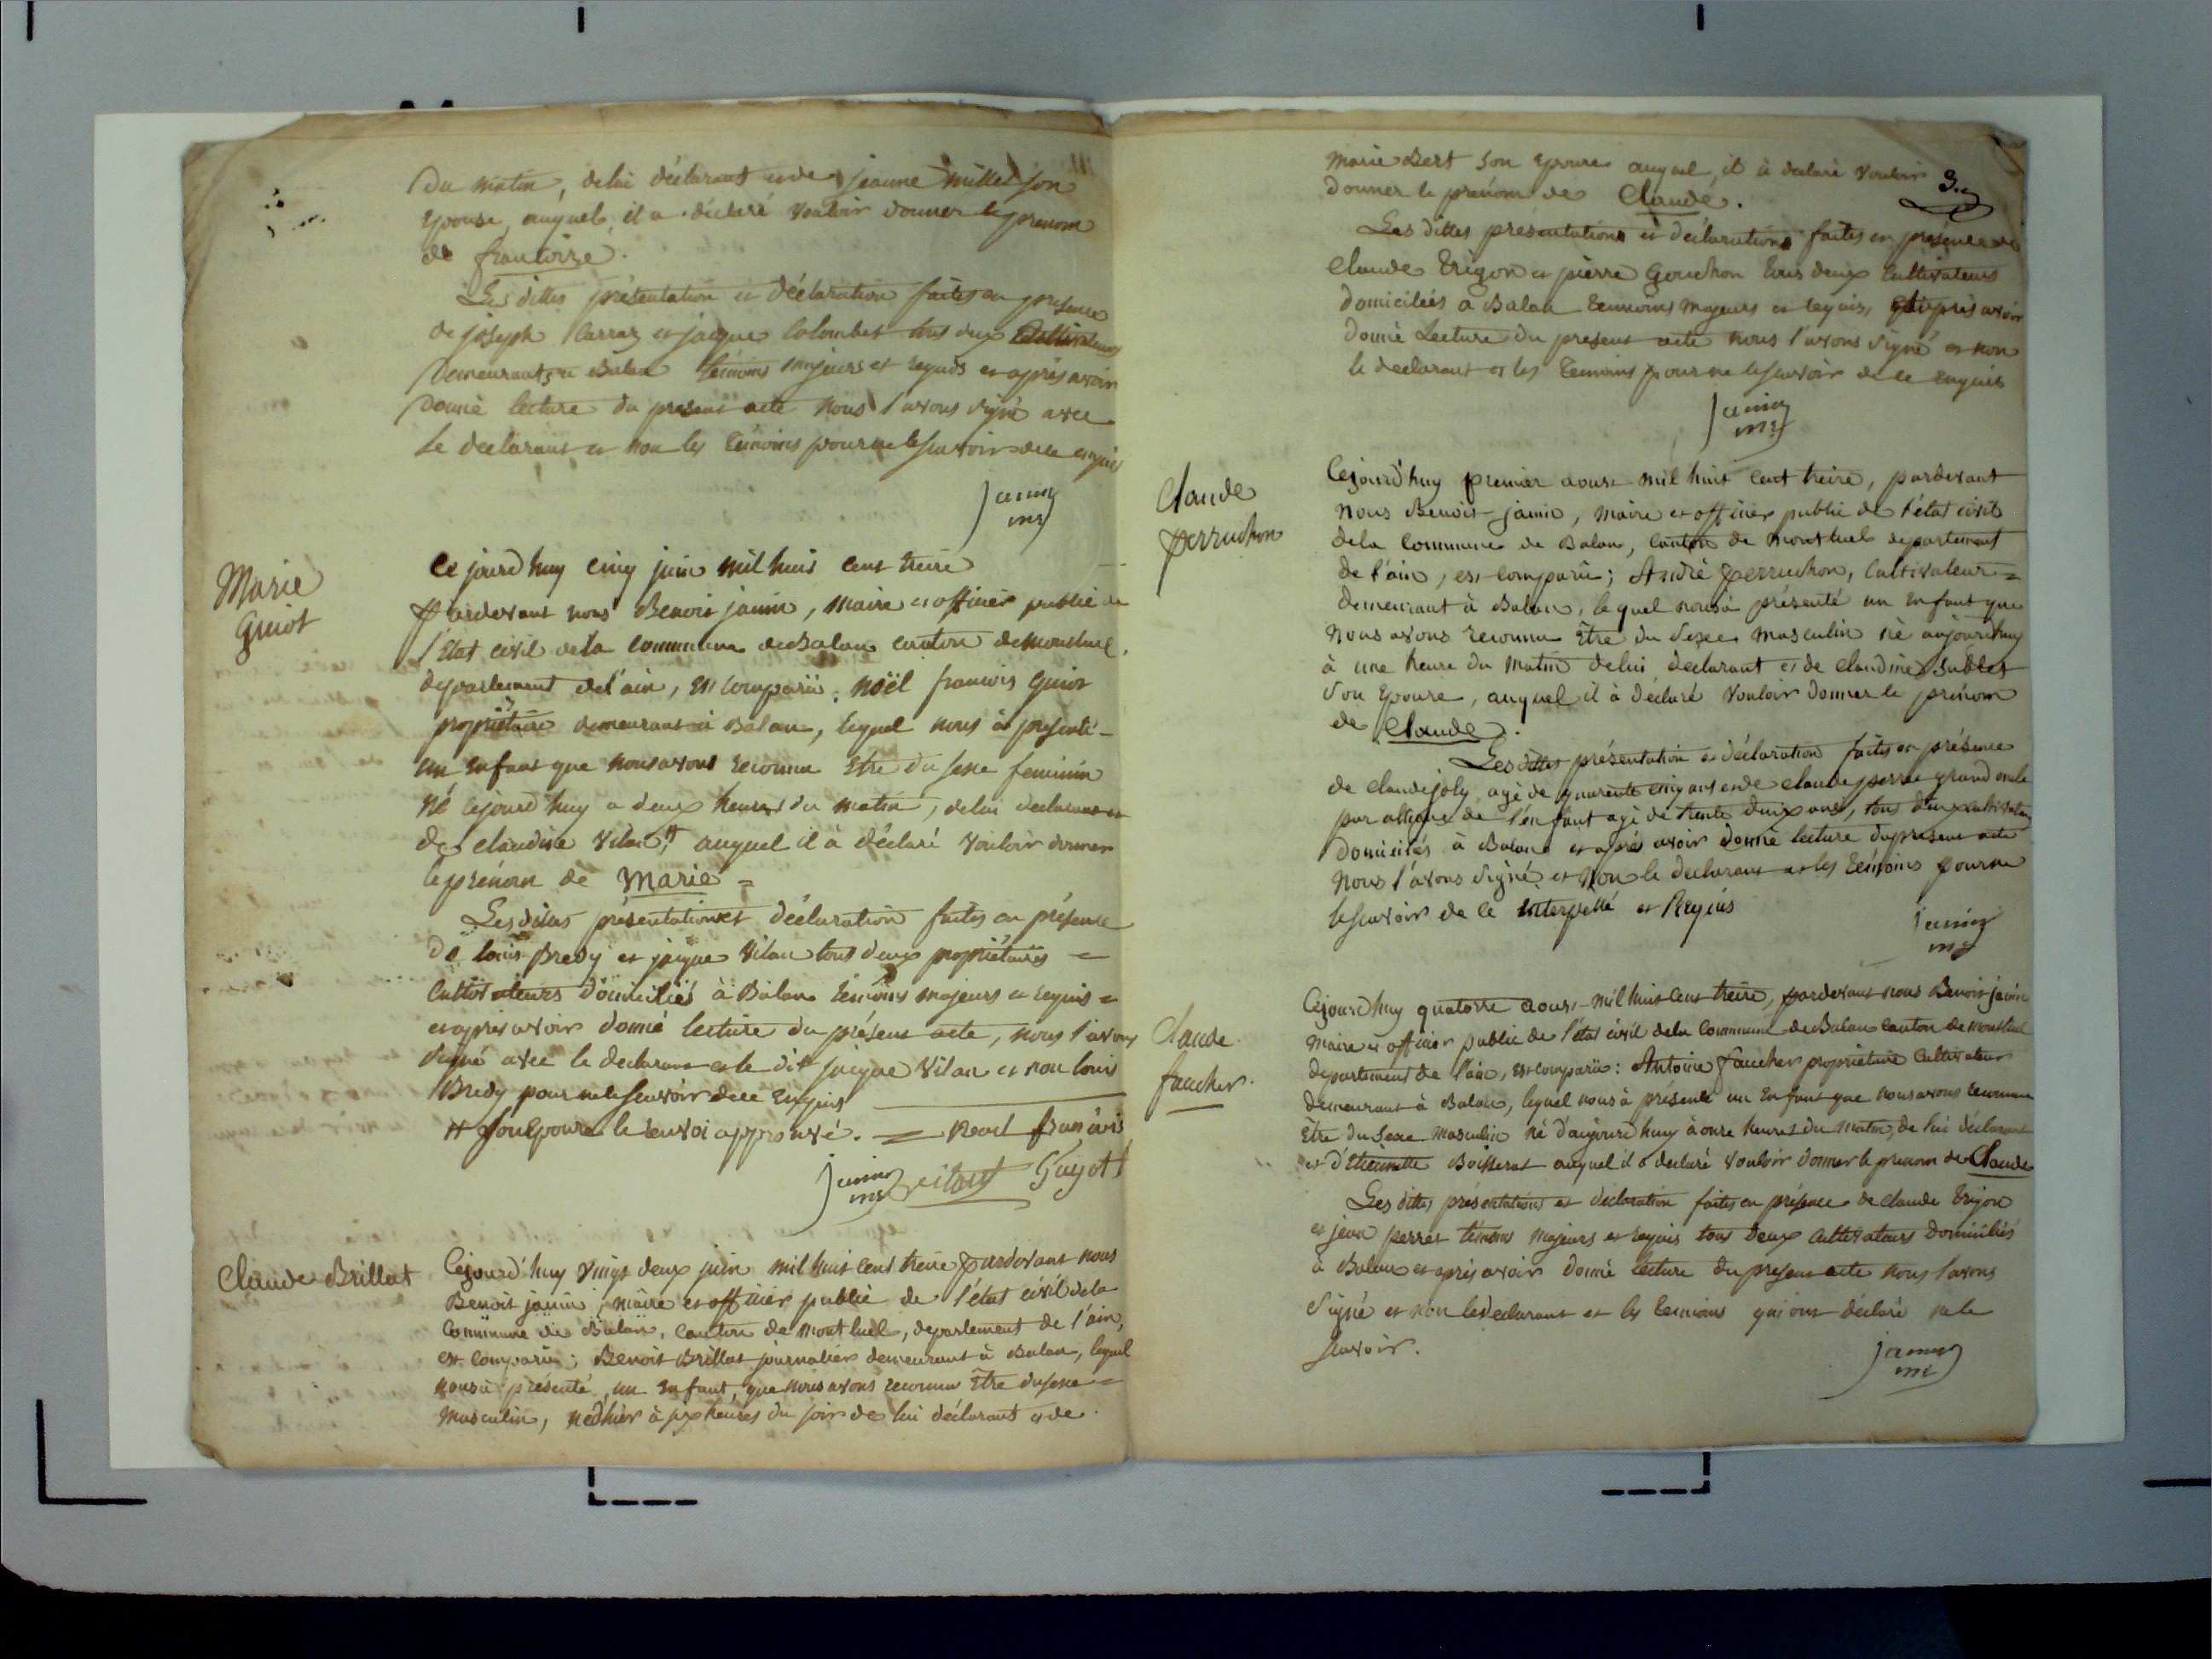 Du matin, de lui déclarant et de jeanne millet son
Epouse, auquel, il a déclaré vouloir donner le prenom
de francoize.
Les dittes présentation et déclaration faites en presence
de joseph Carraz et jacque Colombet tous deux Cultivateurs
Demeurants a Balan témoins majeurs et requis et après avoir
Donné lecture du present acte nous l'avons signé avec
le declarant et non les témoins pour ne le scavoir de ce enquis
janin
me
Marie
Guiot
Ce jourd'huy cinq juin mil huit cent treize
Pardevant nous Benoit janin, maire et officier public de
l'Etat civil de la commune de Balan canton de Montluel
département de l'ain, est comparû; noël francois Guiot
propriétaire demeurant à Balan, lequel nous à presenté
un Enfant que nous avons reconnu Etre du sexe feminin
Né cejourd'huy a deux heures du matin, de lui declarant et
de claudine vilan # auquel il à déclaré vouloir donner
le prénom de Marie =
Les dittes présentation et déclaration faites en présence
De louis Bredy et jacque Vilan tous deux propriétaires =
Cultivateurs domiciliés à Balan témoins majeurs et requis =
et après avoir donné lecture du présent acte, nous l'avons
signé avec le declarant et le dit jacque Vilan et non louis
Bredy pour ne le scavoir de ce Enquis
# son Epouse le renvoi approuvé. = noel francois
janin
me vilant Guyot
Claude Brillat
Cejourd'huy vingt deux juin mil huit cent treize pardevant nous
Benoit janin, maire et officier public de l'état civil de la
Commune de Balan, Canton de Montluel, departement de l'ain,
est comparû; Benoit Brillat journalier demeurant à Balan, lequel
nous à présenté un Enfant, que nous avons reconnu Etre du sexe =
masculin, né d'hier à six heures du soir de lui déclarant et de
3.
Marie Bert son Epouse auquel, il à déclaré vouloir
Donner le prénom de Claude.
Les dittes présentations et déclarations faites en présence de
Claude Trigon et pierre Gouchon tous deux Cultivateurs
Domiciliés a Balan temoins majeurs et requis, et après avoir
Donné Lecture du present acte nous l'avons signé et non
le declarant et les temoins pour ne le scavoir de ce Enquis
janin
me
Claude
perruchon
Cejourd'huy premier aoust mil huit cent treize, pardevant
Nous Benoit janin, maire et officier public de l'état civil
de la Commune de Balan, canton de montluel departement
de l'ain, est comparû; André perruchon, Cultivateur =
demeurant à Balan, lequel nous à présenté un Enfant que
nous avons reconnu Etre du Sexe masculin né aujourd'huy
à une heure du matin de lui declarant et de claudine Sublet
Son Epouse, auquel il à déclaré vouloir donner le prénom
de Claude.
Les dittes présentation et déclaration faites en présence
de claude joly agé de quarente cinq ans et de claude perret grand oncle
par alliance de l'enfant agé de trente deux ans, tous deux cultivateurs
Domiciliés à Balan et après avoir donné lecture du present acte
Nous l'avons signé et non le declarant et les témoins pour ne
le scavoir de ce interpellé et Requis
janin
me
Claude
faucher.
Cejourd'huy quatorze aoust mil huit cent treize, pardevant nous Benoit janin
maire et officier public de l'état civil de la Commune de Balan canton de montluel
departement de l'ain, est comparû: Antoine faucher propriétaire Cultivateur
Demeurant à Balan, lequel nous à présenté un Enfant que nous avons reconnu
Etre du Sexe masculin né d'aujourd'huy à onze heures du matin, de lui déclarant
et d'Etiennette Boisserat auquel il à declaré vouloir donner le prenom de Claude
Les dittes présentations et declaration faites en présence de claude Trigon
et jean perret témoins majeurs et requis tous deux cultivateurs Domiciliés
à Balan et après avoir donné lecture du present acte nous l'avons
signé et non le declarant et les temoins qui ont déclaré ne le
scavoir.
janin
me